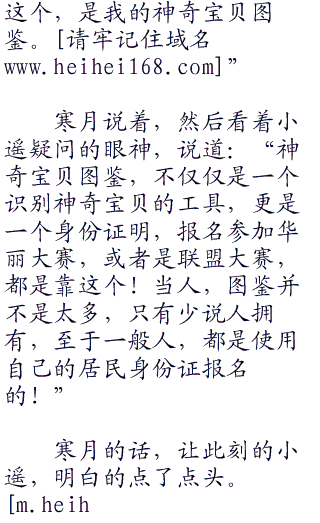 这个，是我的神奇宝贝图
鉴。[请牢记住域名
www.heihei168.com]”
寒月说着，然后看着小
遥疑问的眼神，说道：“神
奇宝贝图鉴，不仅仅是一个
识别神奇宝贝的工具，更是
一个身份证明，报名参加华
丽大赛，或者是联盟大赛，
都是靠这个！当人，图鉴并
不是太多，只有少说人拥
有，至于一般人，都是使用
自己的居民身份证报名
的！”
寒月的话，让此刻的小
遥，明白的点了点头。
[m.heih